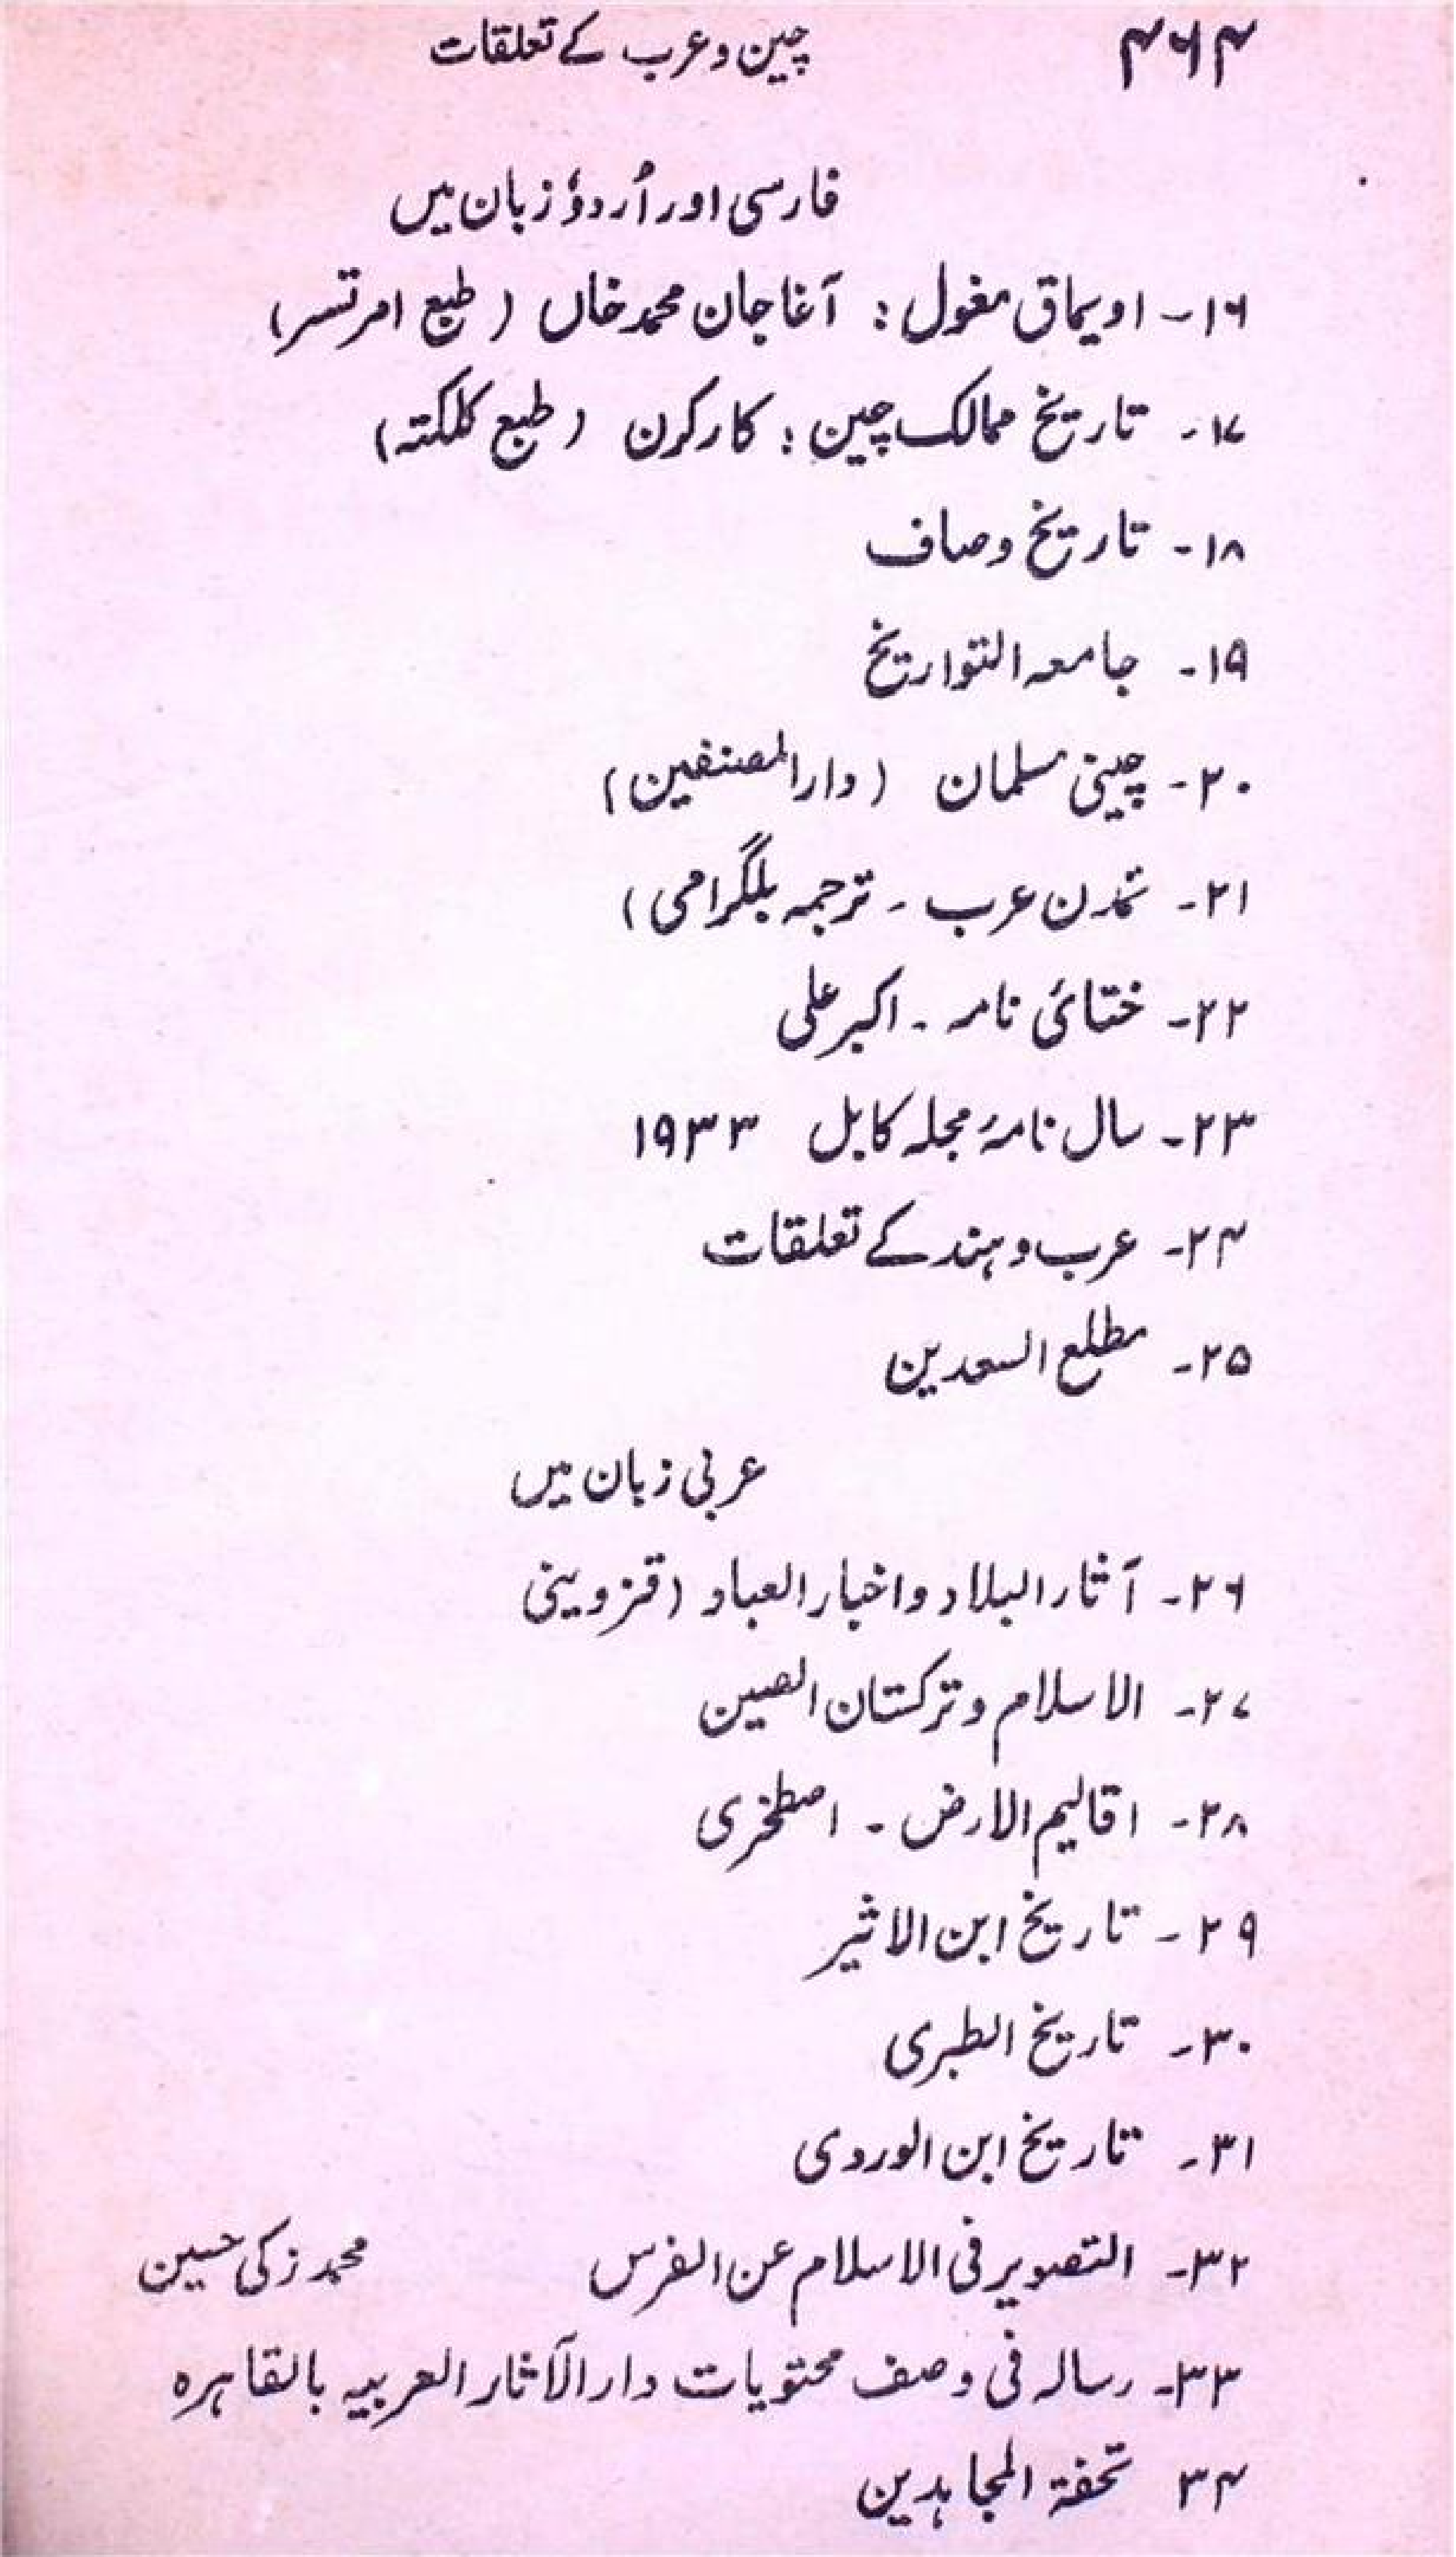 ۴۶۴ چین و عرب کے تعلقات
فارسی اور اُردوٗ زبان میں
۱۶- اویماق مغول : آغا جان محمد خاں (طبع امرتسر)
۱۷- تاریخ ممالک چین : کارکرن (طبع کلکتہ)
۱۸- تاریخ وصاف
۱۹- جامعہ التواریخ
۲۰- چینی مسلمان (دارالمصنفین)
۲۱- تمدن عرب - ترجمہ بلگرامی)
۲۲- ختائی نامہ - اکبر علی
۲۳- سال نامۂ مجلہ کابل ۱۹۳۳
۲۴- عرب و ہند کے تعلقات
۲۵- مطلع السعدین
عربی زبان میں
۲۶- آثار البلاد و اخبار العباد (قزوینی
۲۷- الاسلام و ترکستان الصین
۲۸- اقالیم الارض - اصطخری
۲۹- تاریخ ابن الاثیر
۳۰- تاریخ الطبری
۳۱- تاریخ ابن الوردی
۳۲- التصویر فی الاسلام عن الفرس محمد زکی حسین
۳۳- رسالہ فی وصف محتویات دار الآثار العربیہ بالقاہرہ
۳۴ تحفۃ المجاہدین